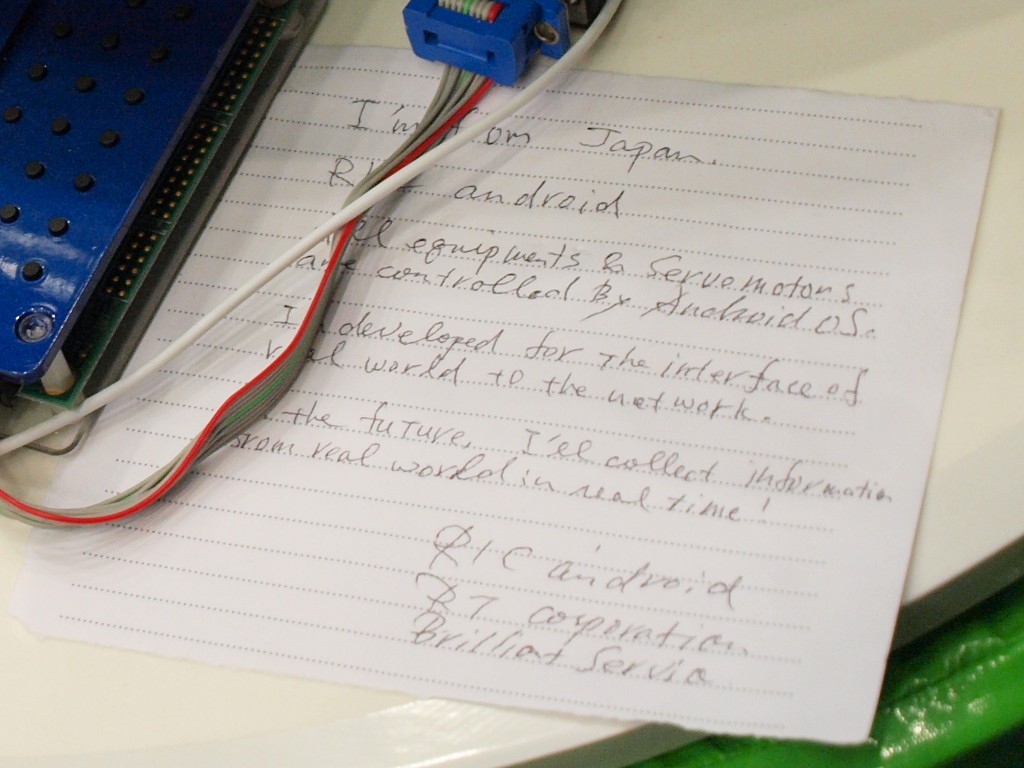 I'm from Japan.
RIC android
All equipments & Servomotors
are controlled By Android OS.
I'm developed for The interface of
real world to the network.
the future, I'll collect information
from real world in real time!
RIC android
RT corporation
Brilliant Servic